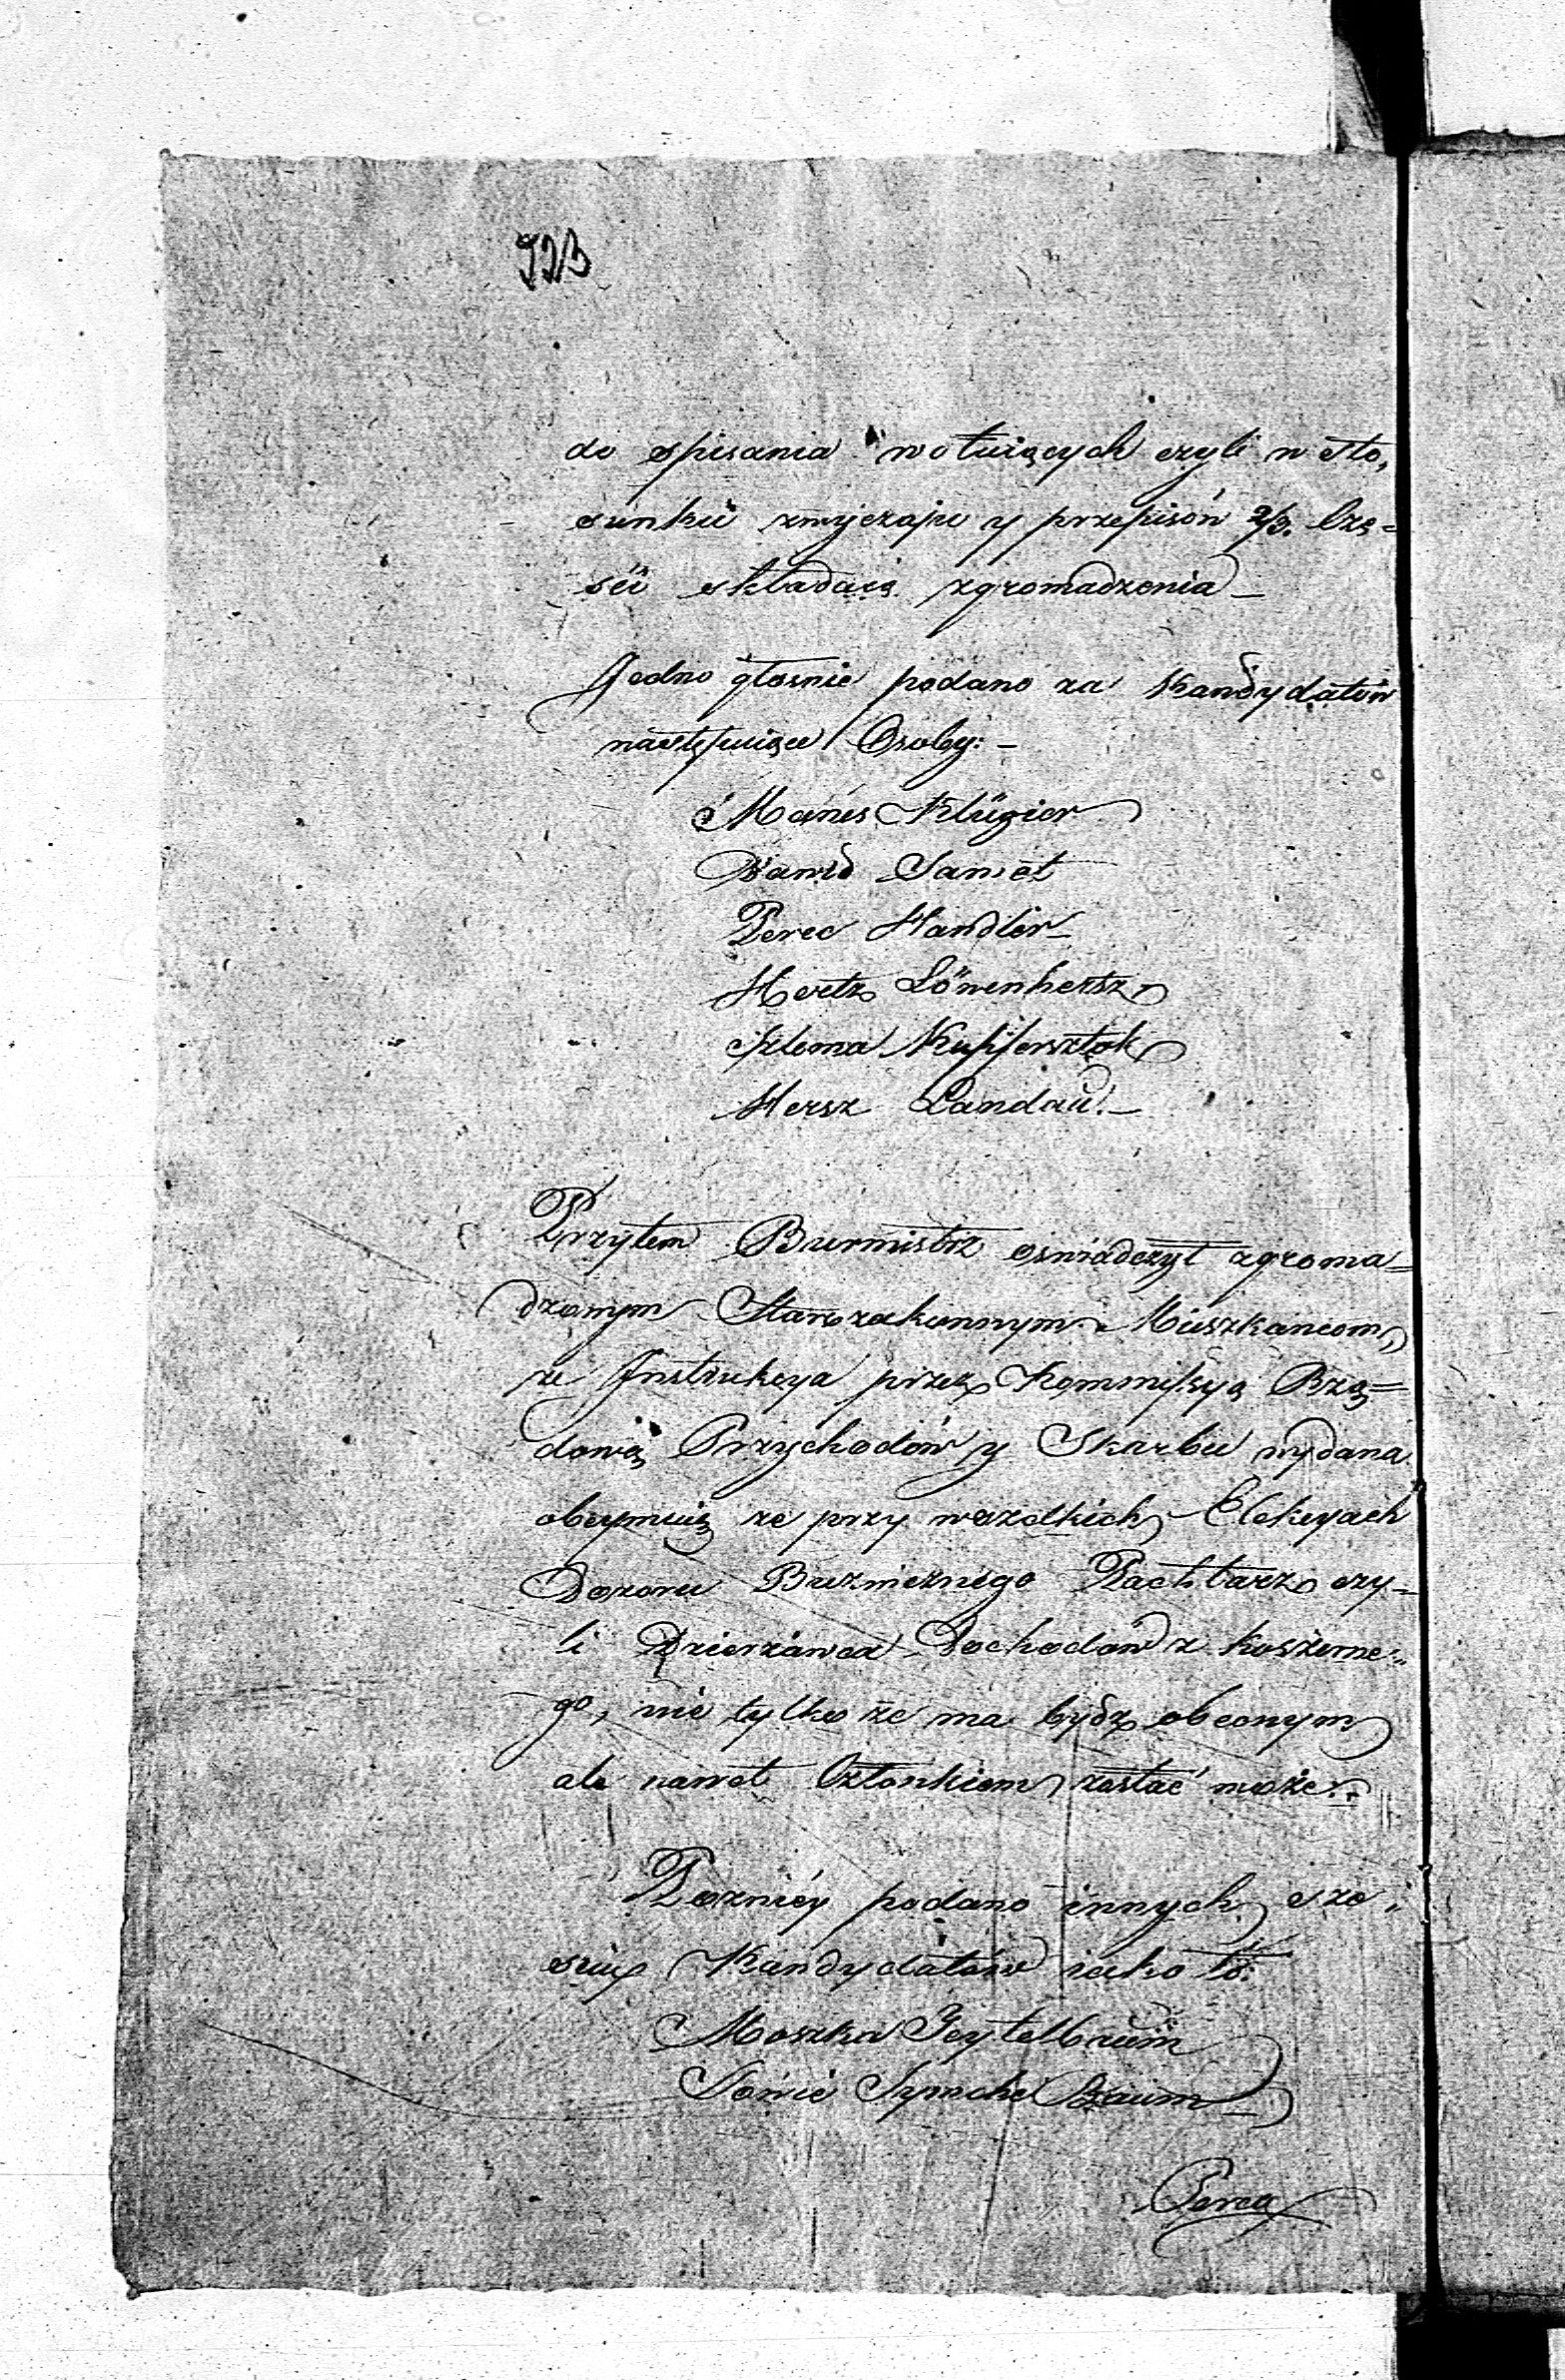 923
do spisania wotuiących czyli w sto„
sunku zwyczaju y przepisów 2/3. Czę=
ści składaią zgromadzenia –
Jedno głosnie podano za Kandydatów
następuiące Osoby: –
Manes Klugier
Dawid Samet
Perec Handler
Hertz Löwenhertz
Szloma Kupfersztok
Hersz Landau. –
Przytem Burmistrz oświadczył zgroma=
dzonym Starozakonnym Mieszkańcom,
że Instrukcya przez Kommissyą Rzą=
dową Przychodów y Skarbu wydana
obeymuią że przy wszelkich Elekcyach
Dozoru Buznicznego Pachtarz czy–
li Dzierżawca Dochodów z koszerne„
go, nie tylko że ma bydz obecnym
ale nawet Członkiem zostać może. –
Pozniéy podano innych sze„
sciu Kandydatów iako to:
Moszka Teytelbaum
Sowie Symcha Baum
Perca